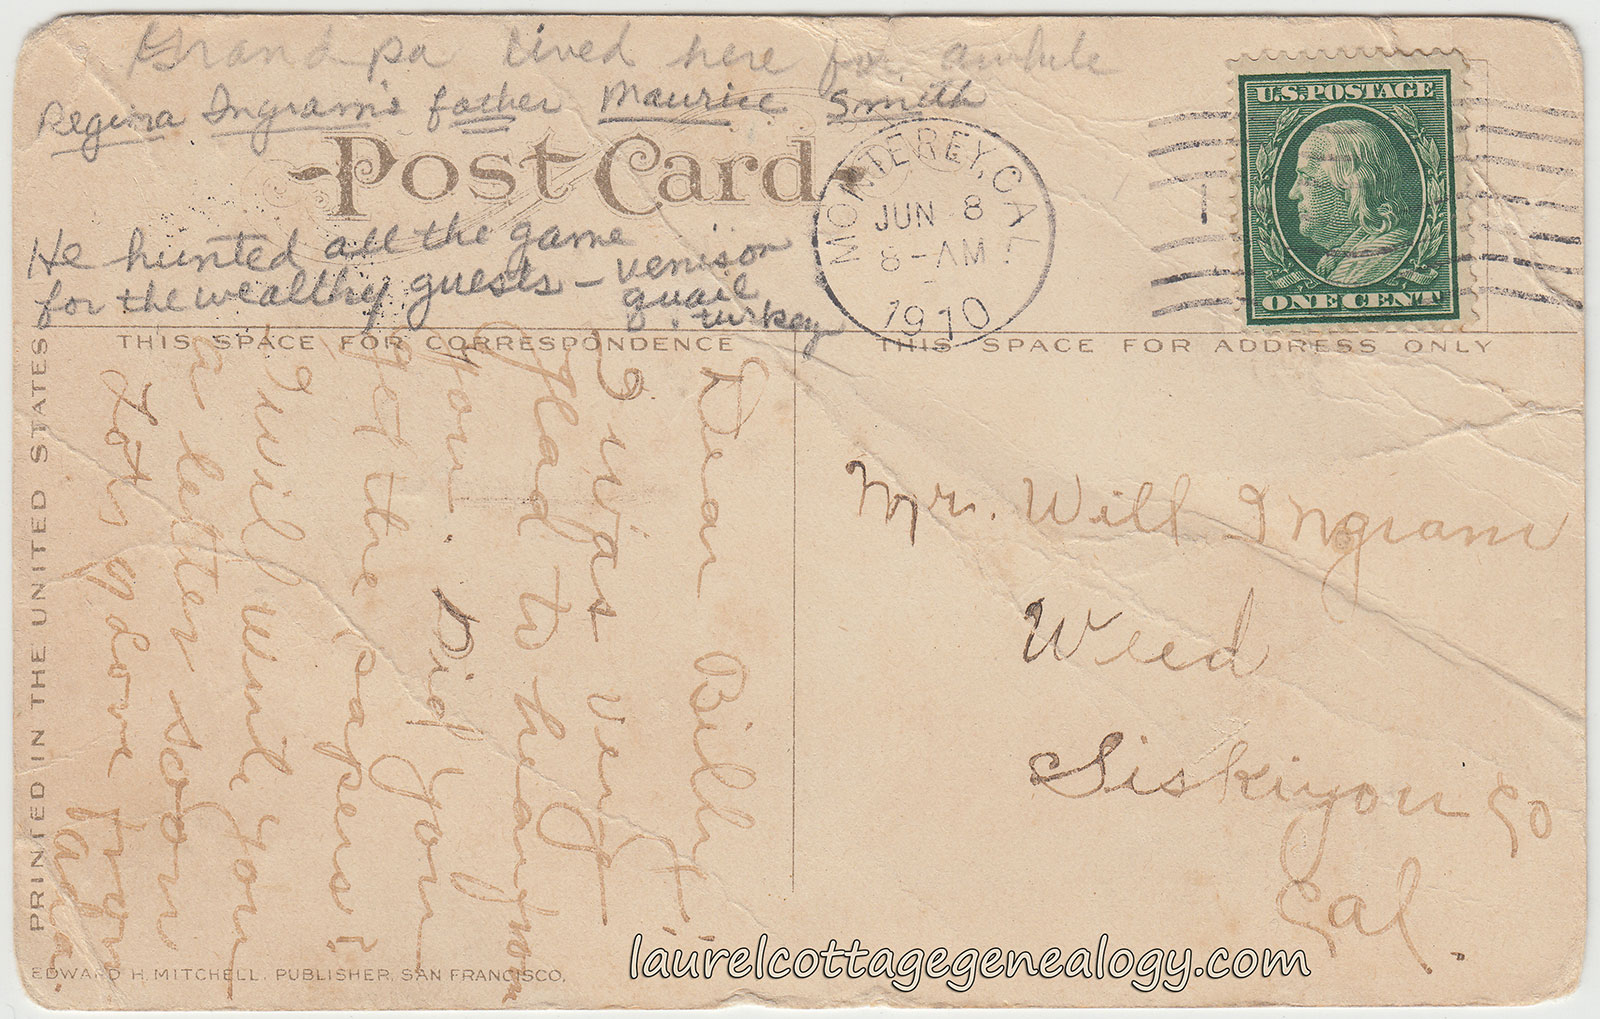 Grandpa lived here for awhile
Regina Ingram's father Maurice Smith
Post Card
He hunted all the game
for the wealthy guests – venison
quail
turkey
MONTEREY, CAL.
JUN 8
8-AM
1910
U.S. POSTAGE
ONE CENT
THIS SPACE FOR CORRESPONDENCE
THIS SPACE FOR ADDRESS ONLY
Dear Billy:
I was very
glad to hear from
you. Did you
get the papers?
I will write you
a letter soon
Lots of love from
Mr. Will Ingram
Weed
Siskiyou Co
Cal.
PRINTED IN THE UNITED STATES
EDWARD H. MITCHELL, PUBLISHER, SAN FRANCISCO.
laurelcottagegenealogy.com